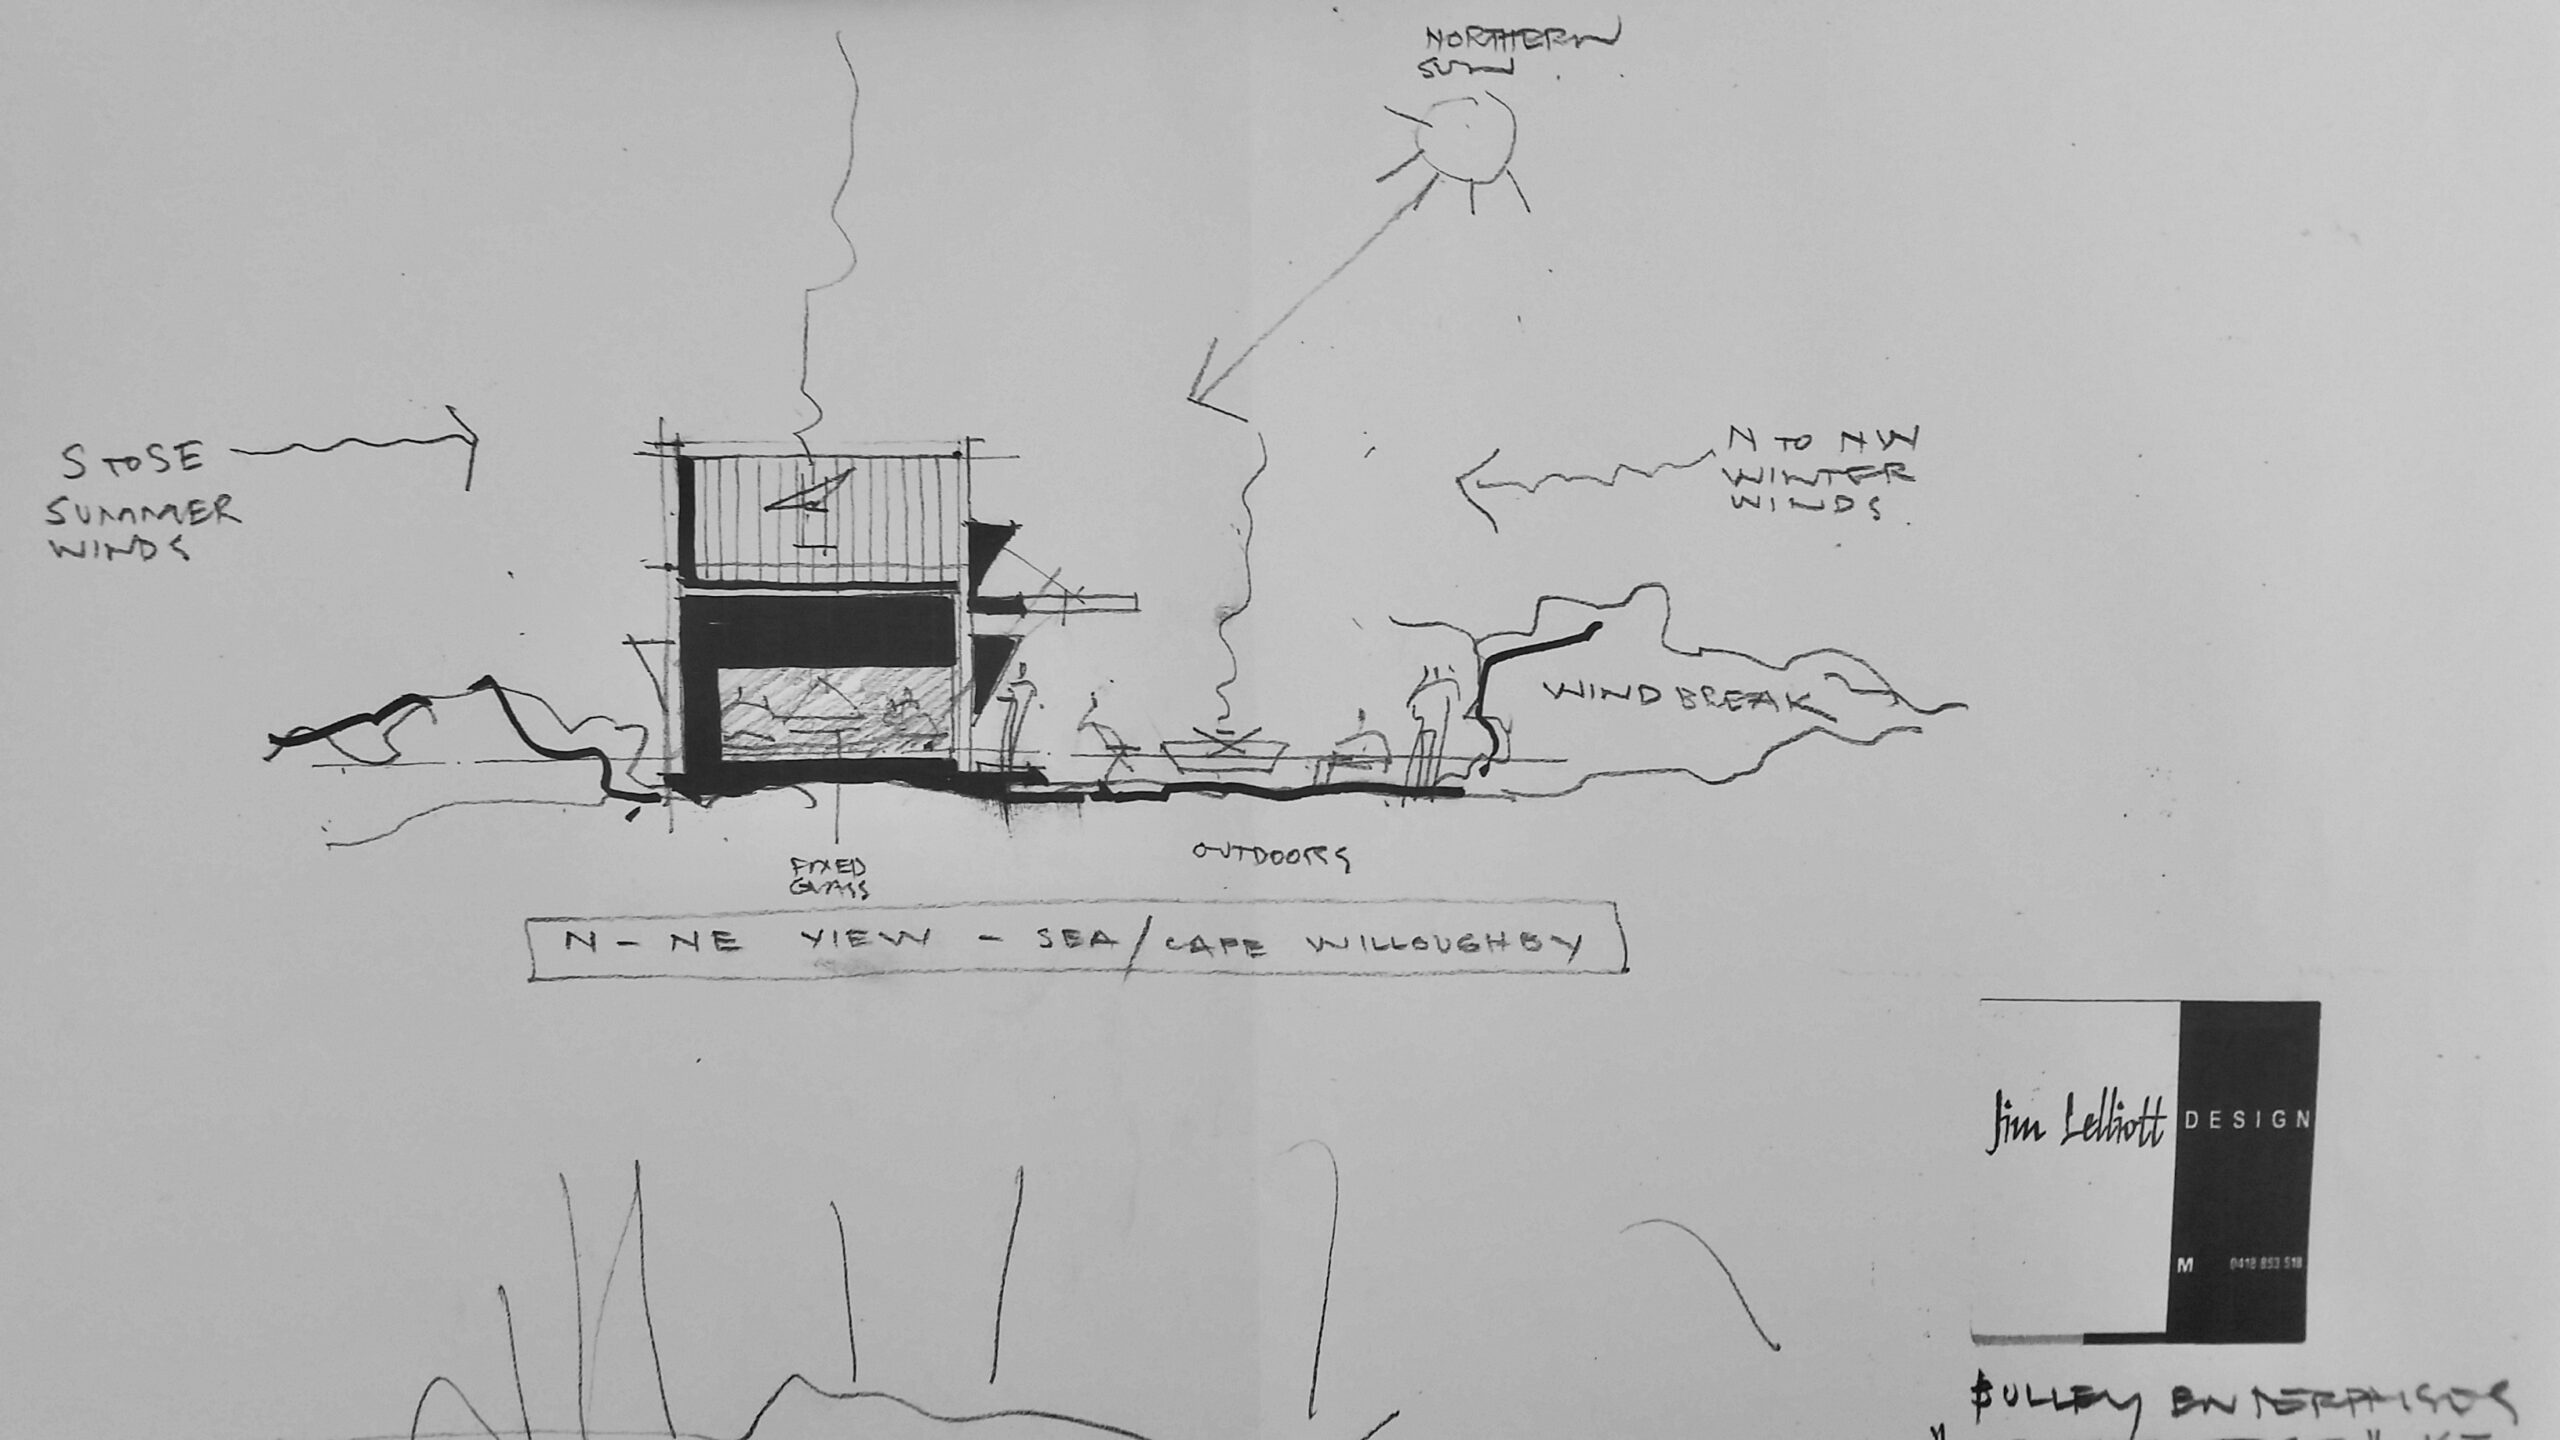 NORTHERN
SUN
S TO SE
SUMMER
WINDS
N TO NW
WINTER
WINDS
WINDBREAK
FIXED
GLASS
OUTDOORS
N - NE VIEW - SEA/CAPE WILLOUGHBY
Jim Lelliott DESIGN
M 0418 853 518
BULLEY ENTERPRISES